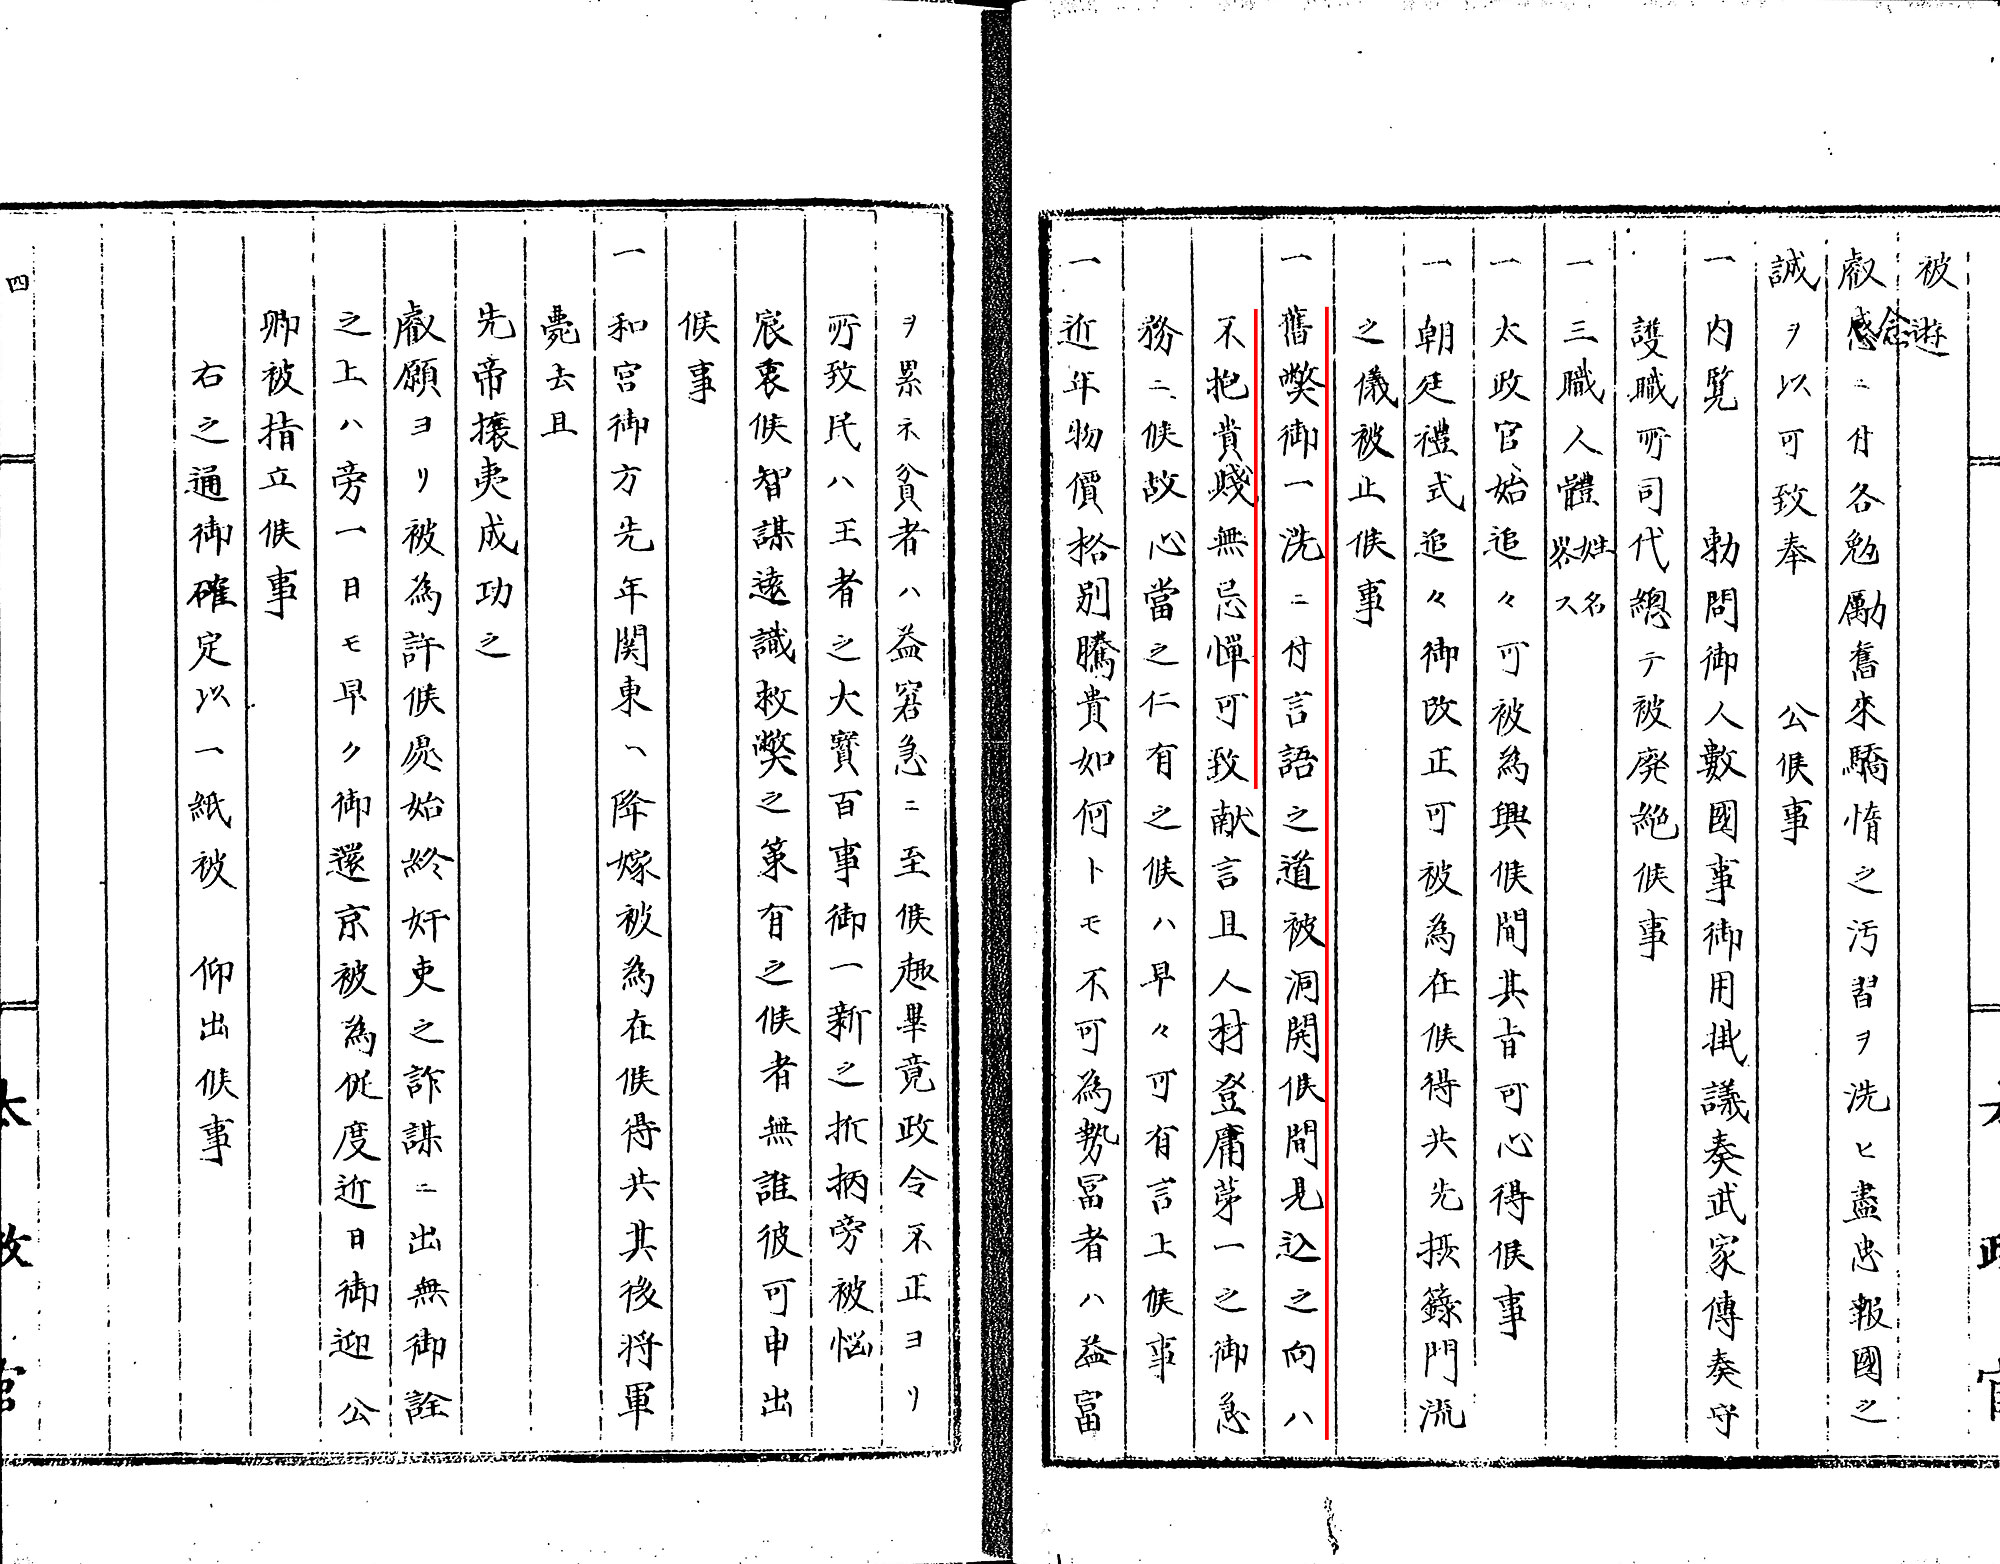 被遊
叡感念ニ付各勉勵舊來驕惰之汚習ヲ洗ヒ盡忠報國之
誠ヲ以可致奉　公候事
一内覧　勅問御人數國事御用掛議奏武家傳奏守
護職所司代總テ被廃絶候事
一三職人體姓名畧ス
一太政官始追々可被為興候間其旨可心得候事
一朝廷禮式追々御改正可被為在候得共先摂籙門流
之儀被止候事
一舊弊御一洗ニ付言語之道被洞開候間見込之向ハ
不抱貴賤無忌憚可致献言且人材登庸第一之御急
務ニ候故心當之仁有之候ハ早々可有言上候事
一近年物價格別騰貴如何トモ不可為勢冨者ハ益富
ヲ累ネ貧者ハ益窘急ニ至候趣畢竟政令不正ヨリ
所致民ハ王者之大寳百事御一新之折柄旁被悩
宸衷候智謀遠識救弊之策有之候者無誰彼可申出
候事
一和宮御方先年関東ヘ降嫁被為在候得共其後将軍
薨去且
先帝攘夷成功之
叡願ヨリ被為許候處始終奸吏之詐謀ニ出無御詮
之上ハ旁一日モ早ク御還京被為促度近日御迎公
卿被指立候事
右之通御確定以一紙被　仰出候事
四
太政官
太政官